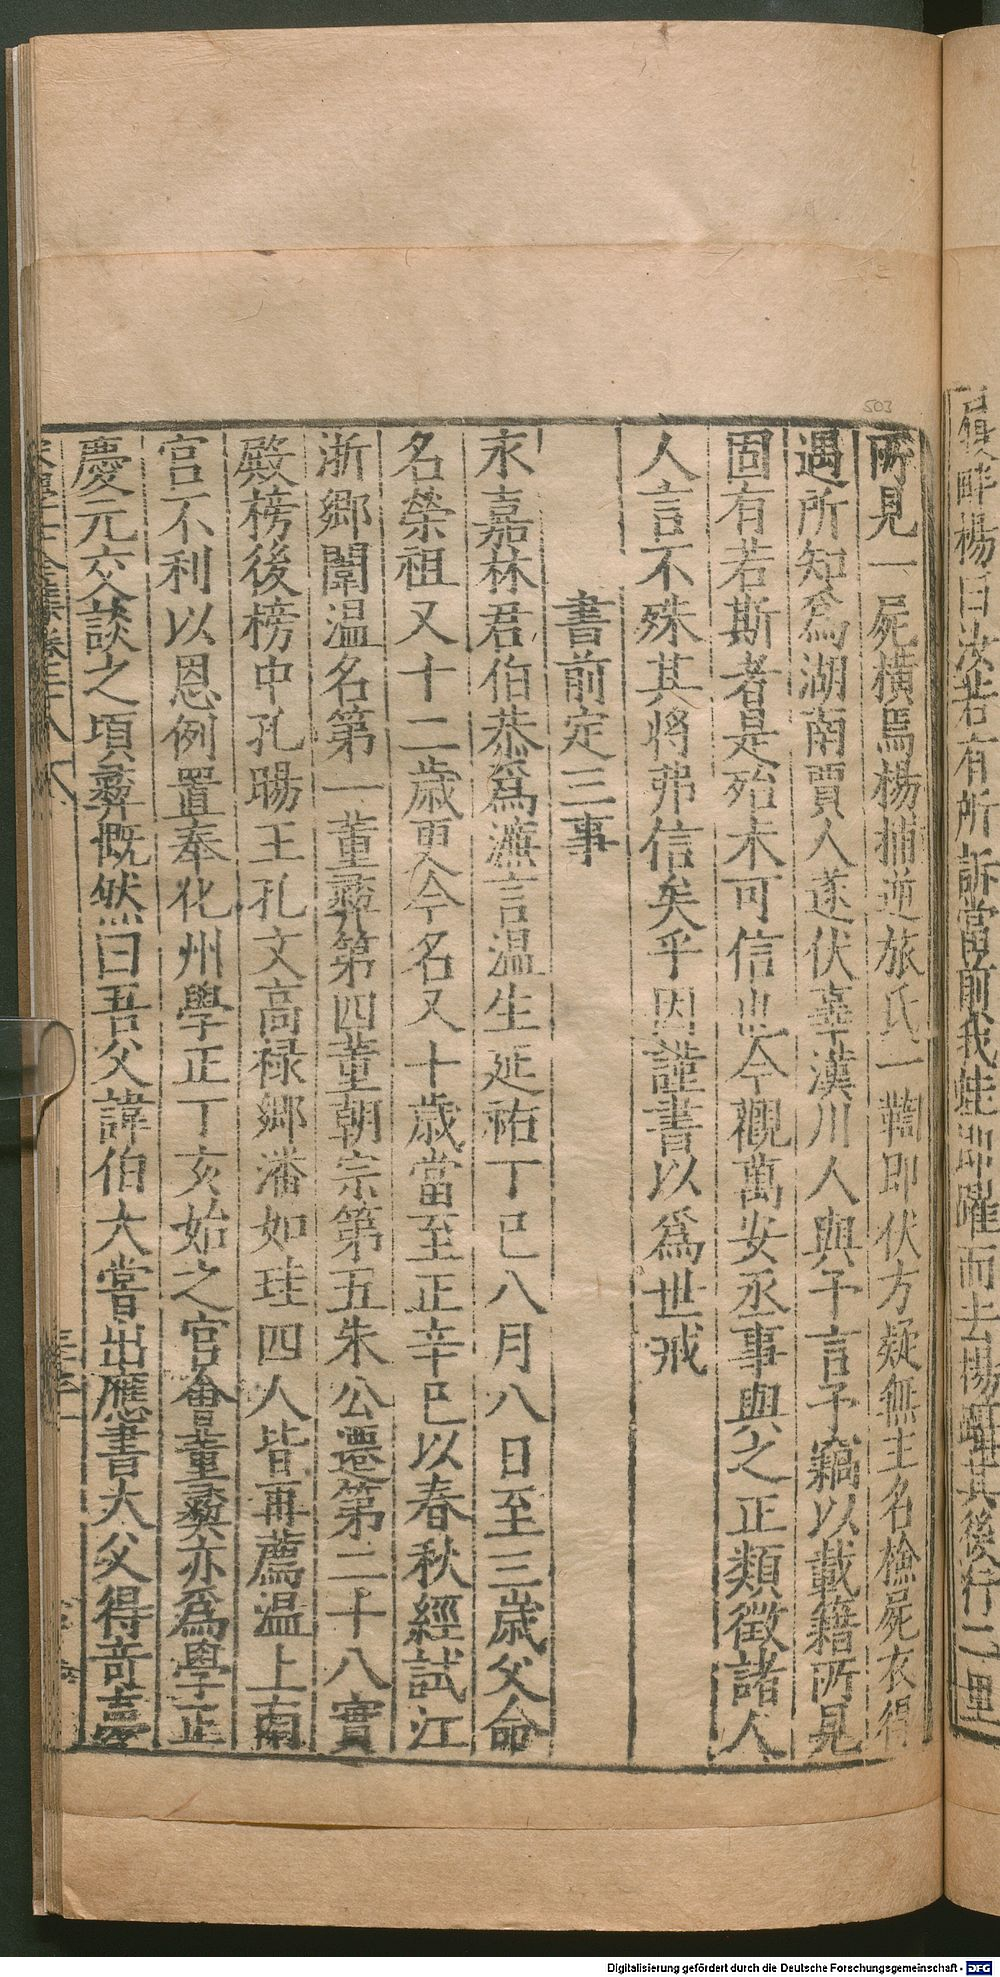 履畔楊曰汝若有所訴當前我蛙即躍而去楊躡其後行二里
503
所見一屍橫焉楊捕逆旅氏一鞫即伏方疑無主名檢屍衣得
遇所知為湖南賈人遂伏辜漢川人與予言予竊以載籍所見
固有若斯者是殆未可信也今觀萬安丞事與之正類徵諸人
人言不殊其將弗信矣乎因謹書以為世戒
書前定三事
永嘉林君伯恭為濂言温生延祐丁巳八月八日至三歲父命
名榮祖又十二歲更今名又十歲當至正辛巳以春秋經試江
浙鄉闈温名第一董彞第四董朝宗第五朱公遷第二十八實
殿榜後榜中孔暘王孔文高祿鄉潘如珪四人皆再薦温上南
宮不利以恩例置奉化州學正丁亥始之官會董彞亦為學正
慶元交談之頃彞慨然曰吾父諱伯大嘗出應書大父得竒夢
宋學士全集卷三十八
Digitalisierung gefördert durch die Deutsche Forschungsgemeinschaft - DFG